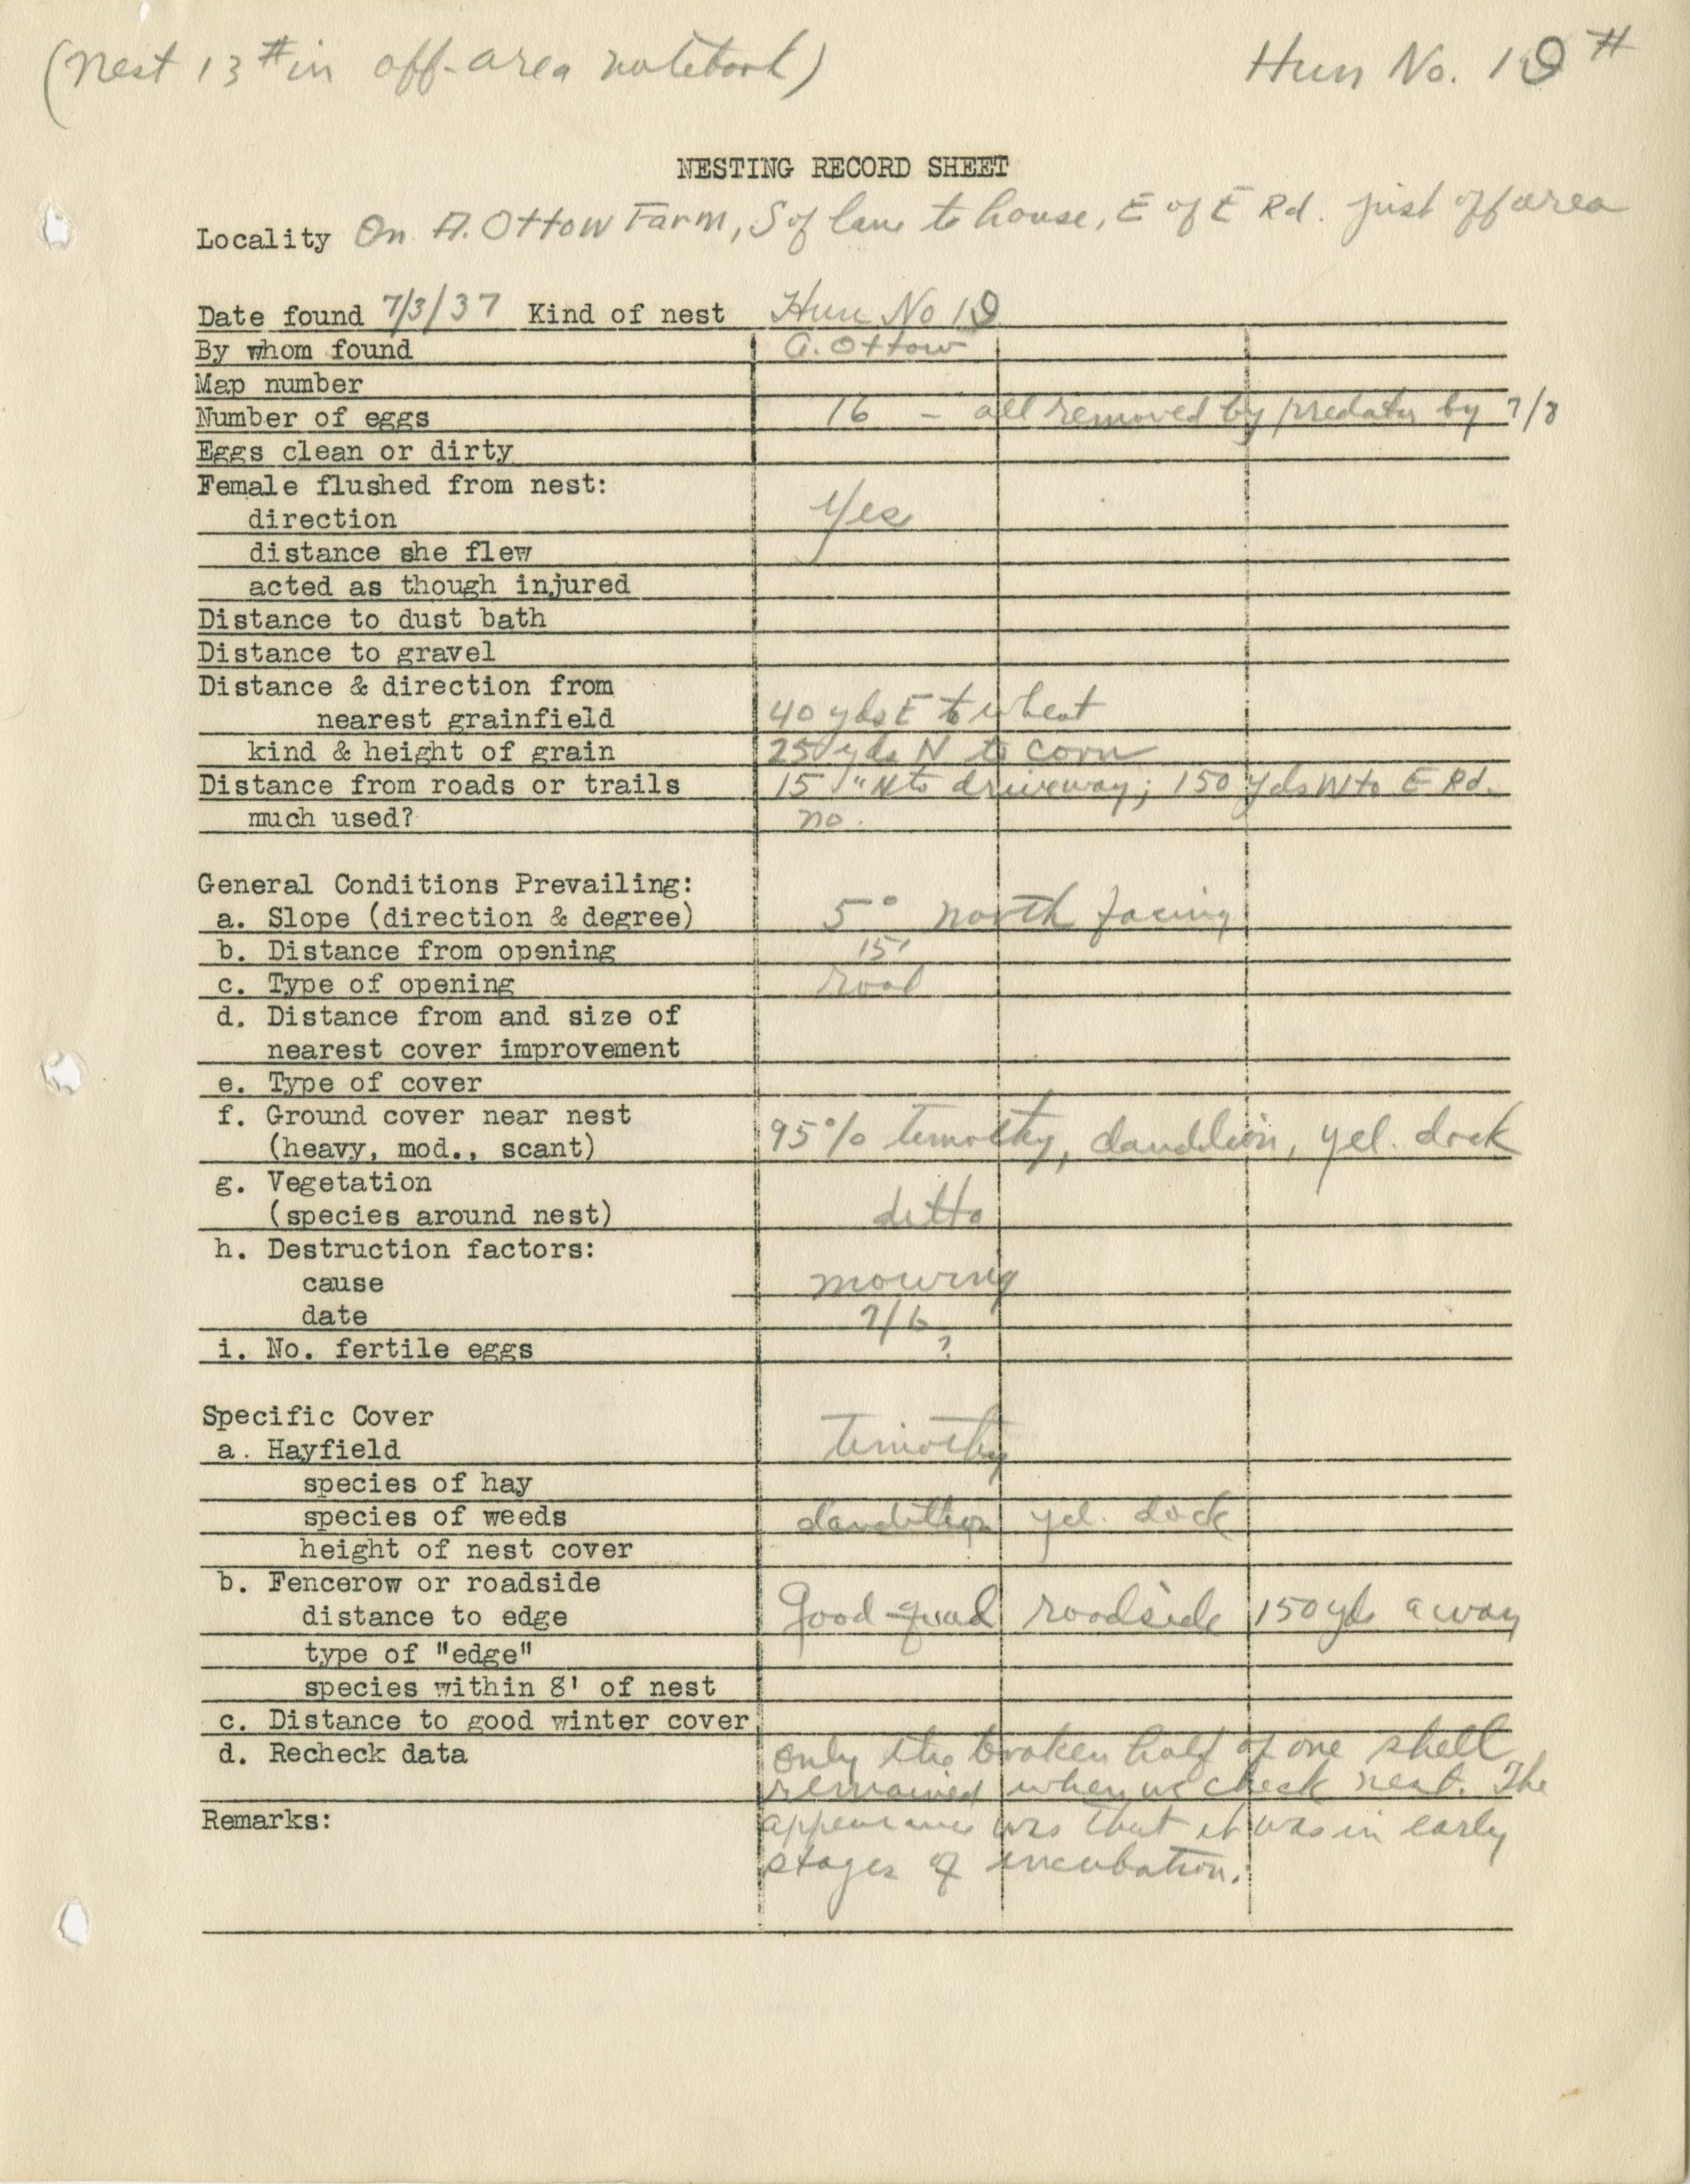 (Nest 13# in off-area notebook)
Hun No. 19 #
NESTING RECORD SHEET
Locality On A. Ottow Farm, S of lane to house, E of E Rd. just off area
Date found 7/3/37 Kind of nest Hun No 19
By whom found A. Ottow
Map number
Number of eggs 16 - all removed by predator by 7/8
Eggs clean or dirty
Female flushed from nest:
direction Yes
distance she flew
acted as though injured
Distance to dust bath
Distance to gravel
Distance & direction from
nearest grainfield 40 yds E to wheat
kind & height of grain 25 yds N to corn
Distance from roads or trails 15 " N to driveway; 150 yds W to E Rd.
much used? no.
General Conditions Prevailing:
a. Slope (direction & degree) 5° north facing
b. Distance from opening 15'
c. Type of opening road
d. Distance from and size of
nearest cover improvement
e. Type of cover
f. Ground cover near nest
(heavy, mod., scant) 95% timothy, dandelion, yel. dock
g. Vegetation
(species around nest) ditto
h. Destruction factors:
cause mowing
date 7/6
i. No. fertile eggs ?
Specific Cover
a. Hayfield timothy
species of hay
species of weeds dandelion yel. dock
height of nest cover
b. Fencerow or roadside
distance to edge Good quail roadside 150 yds away
type of "edge"
species within 8' of nest
c. Distance to good winter cover
d. Recheck data only the broken half of one shell
remained when we check nest. The
Remarks: appearance was that it was in early
stages of incubation.